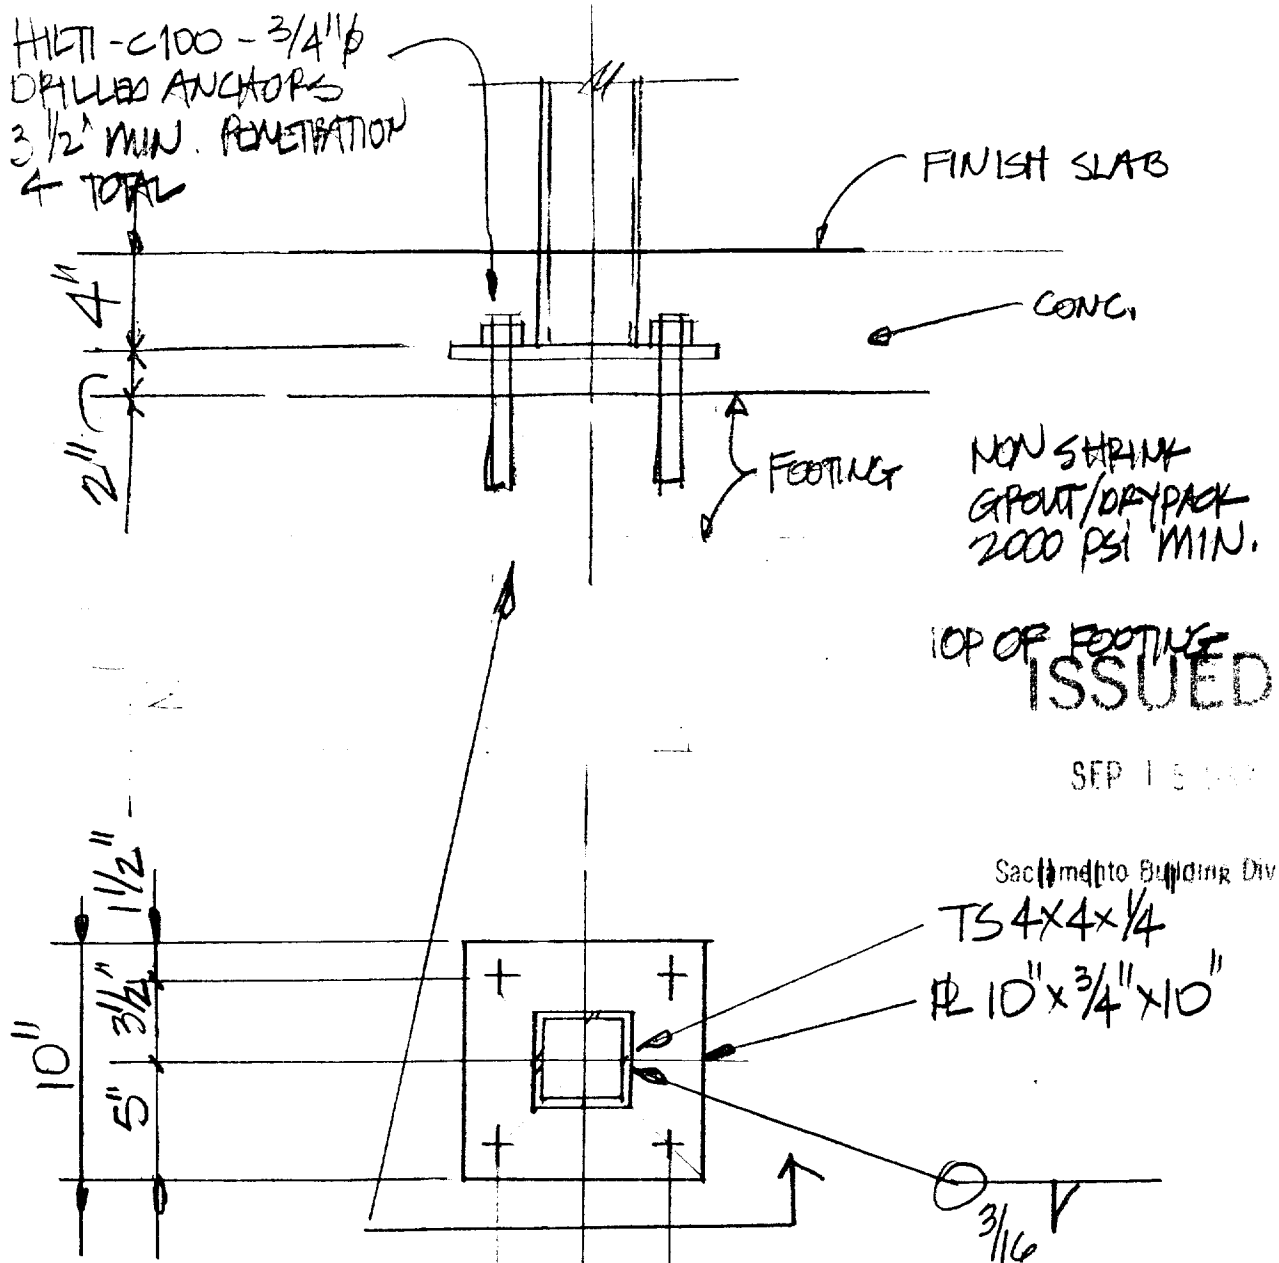 HILTI-C100-3/4"φ
DRILLED ANCHORS
3 1/2" MIN. PENETRATION
4 TOTAL
FINISH SLAB
4"
CONC.
2"
FOOTING
NON SHRINK
GROUT/DRYPACK
2000 PSI MIN.
TOP OF FOOTING
ISSUED
SEP 1
Sacramento Building Div
1 1/2"
TS 4X4X1/4
3 1/2"
PL 10"X3/4"X10"
10"
5"
3/16